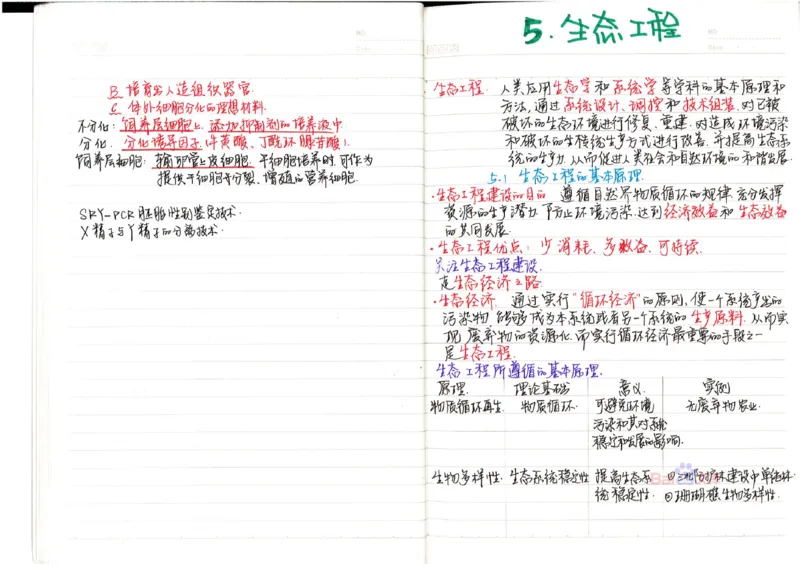 B. 培育出人造组织器官.
C. 体外细胞分化的理想材料.
不分化: 饲养层细胞上 添加抑制剂的培养液中
分化. 分化诱导因子(牛黄酸、丁酰环腺苷酸).
饲养层细胞: 输卵管上皮细胞. 干细胞培养时可作为
提供干细胞分裂、增殖的营养细胞.
SRY-PCR 胚胎性别鉴定技术.
X精子与Y精子的分离技术.
5.生态工程
生态工程. 人类应用生态学和系统学等学科的基本原理和
方法,通过系统设计、调控和技术组装,对已被
破坏的生态环境进行修复、重建,对造成环境污染
和破坏的生传统生产方式进行改善.并提高生态系
统的生产力.从而促进人类社会和自然环境的和谐发展.
5.1 生态工程的基本原理.
·生态工程建设的目的 遵循自然界物质循环的规律.充分发挥
资源的生产潜力.防止环境污染.达到经济效益和生态效益
的同步发展.
·生态工程优点: 少消耗、多效益、可持续.
关注生态工程建设.
走生态经济之路.
·生态经济. 通过实行"循环经济"的原则,使一个系统产出的
污染物 能够成为本系统或者另一个系统的生产原料.从而实
现 废弃物的资源化.而实行循环经济最重要的手段之一
是生态工程.
生态工程所遵循的基本原理.
原理. 理论基础 意义. 实例
物质循环再生. 物质循环. 可避免环境 无废弃物农业.
污染和其对系统
稳定和发展的影响.
生物多样性. 生态系统稳定性 提高生态系 ①三北防护林建设中单纯林.
统稳定性. ②珊瑚礁生物多样性.